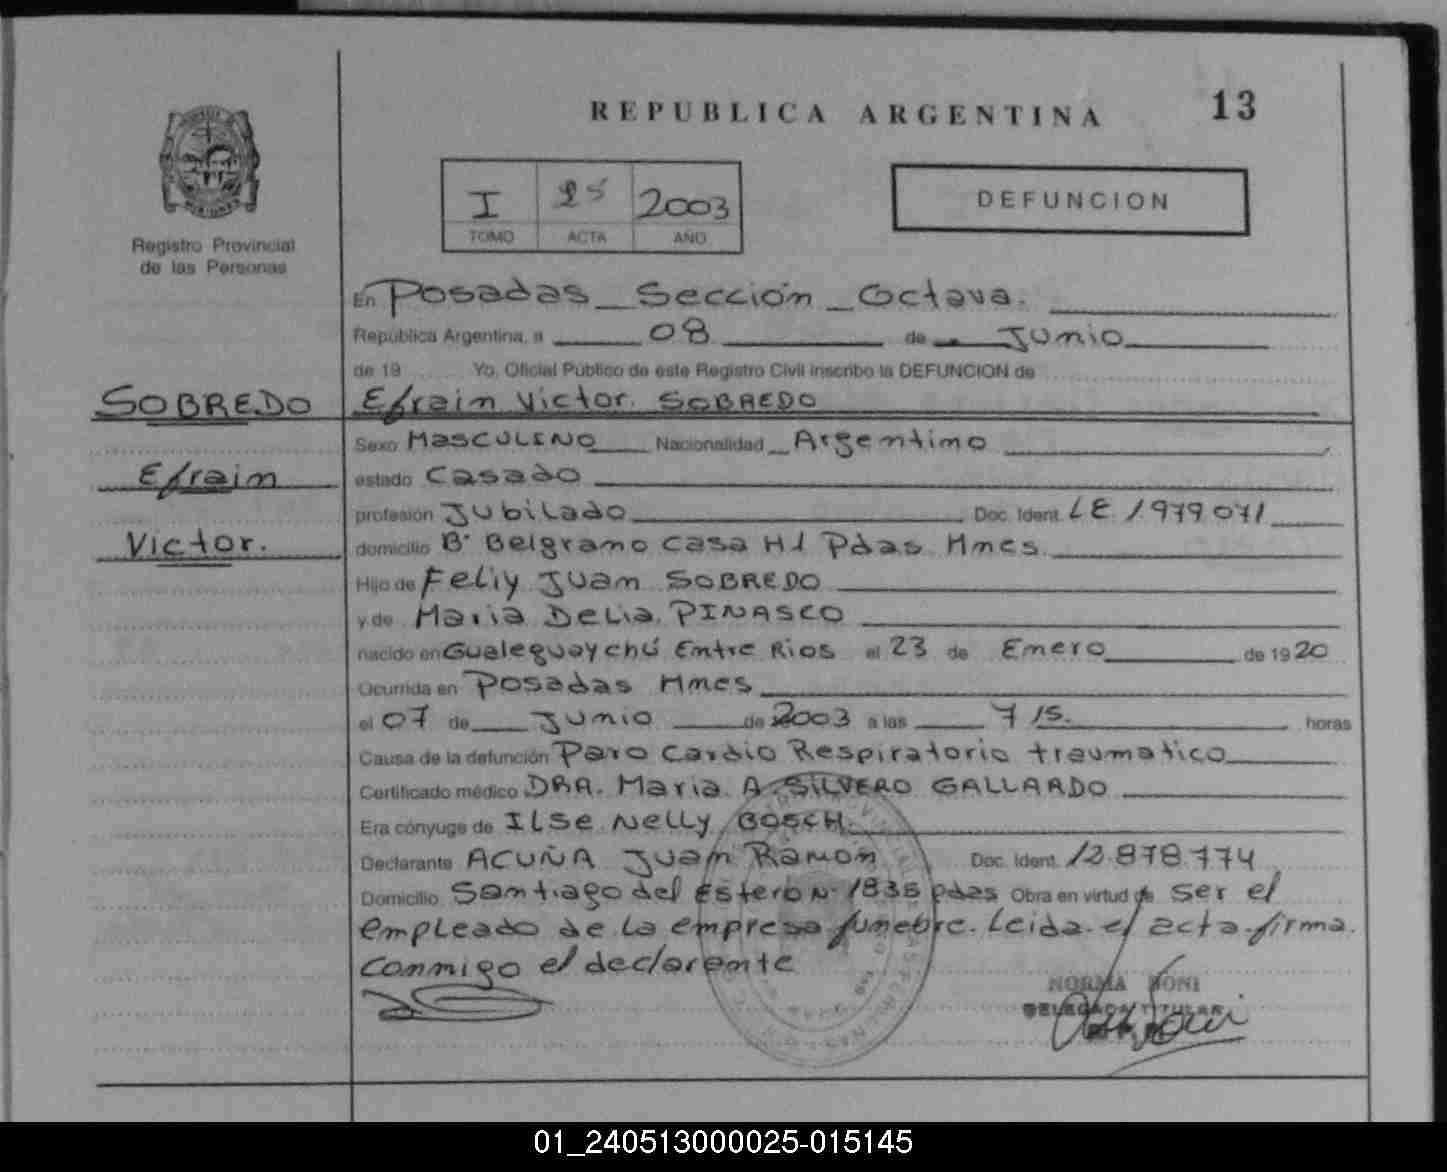 REPUBLICA ARGENTINA 13
I 25 2003
TOMO ACTA AÑO
DEFUNCION
MISIONES
Registro Provincial
de las Personas
En Posadas Sección Octava.
República Argentina, a 08 de Junio
de 19 Yo, Oficial Público de este Registro Civil inscribo la DEFUNCION de
SOBREDO Efrain Victor. SOBREDO
Sexo Masculino Nacionalidad Argentino
Efrain estado Casado
profesión Jubilado Doc. Ident. LE 1.979.071
Victor. domicilio Bº Belgrano casa H1 Pdas. Mnes.
Hijo de Feliy Juan SOBREDO
y de Maria Delia. PINASCO
nacido en Gualeguaychú Entre Rios el 23 de Enero de 1920
Ocurrida en Posadas Mnes
el 07 de Junio de 2003 a las 7 15. horas
Causa de la defunción Paro Cardio Respiratorio traumatico
Certificado médico DRA. Maria A SILVERO GALLARDO
Era cónyuge de Ilse Nelly BOSCH.
Declarante ACUÑA Juan Ramon Doc. Ident. 12.878.774
Domicilio Santiago del Estero Nº 1835 pdas Obra en virtud de ser el
empleado de la empresa funebre. Leida el acta firma
conmigo el declarante
NORMA NONI
DELEGADA TITULAR
01_240513000025-015145